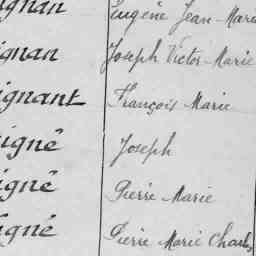 ignan Eugène Jean-Marie
ignan Joseph Victor-Marie
ignant François Marie
igné Joseph
igné Pierre Marie
igné Pierre Marie Charles